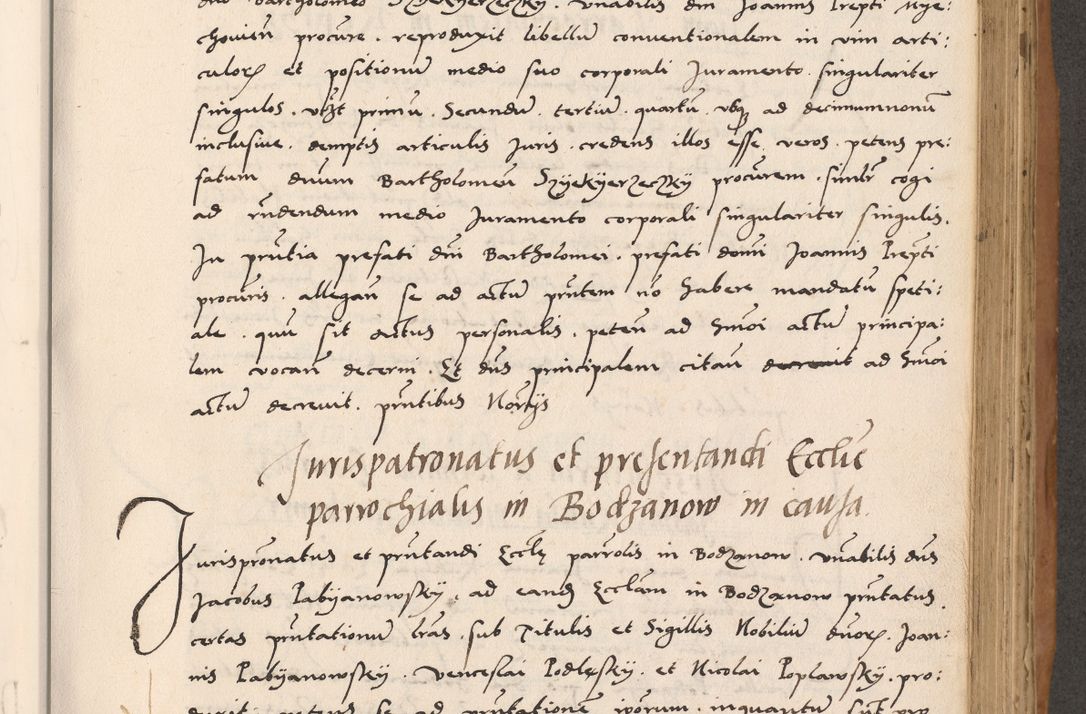 chovien procure . reproduxit libellu conventionalem in vim arti:
culor et positionu medio suo corporali Juramento singulariter
singulos . vt primu . Secundu . tertiu . quartu . vsq ad decimumnonu
inclusiue . demptis articulis Juris . credens illos esse veros . petens pre:
fatum dnum Bartholomeu procurem . similr cogi
ad rndendum medio Juramento corporali singulariter singulis.
In pntia prefati dni Bartholomei . prefati domi Joannis Prepti
procuris . allegan se ad actu pntem no habere mandatu speti:
ale . quu sit actus personalis . peten ad hmoi actu principa:
lem vocan decerni . Et dns principalem citan decreuit ad hmoi
actu decreuit . pntibus Norys
Jurispatronatus et presentandi Ecclie
parrochialis in Bodzanow in causa.
Jurispronatus et pntandi Eccle parrolis in Bodzanow . vnabilis dns
Jacobus Pabyanowsky . ad eand Ecclam in Bodzanow pntatus .
certas pntationu lras . sub Titulis et Sigillis Nobiliu duor . Joan:
nis Pabyanowsky . Venceslai Podlęsky . et Nicolai Poplawsky . pro: